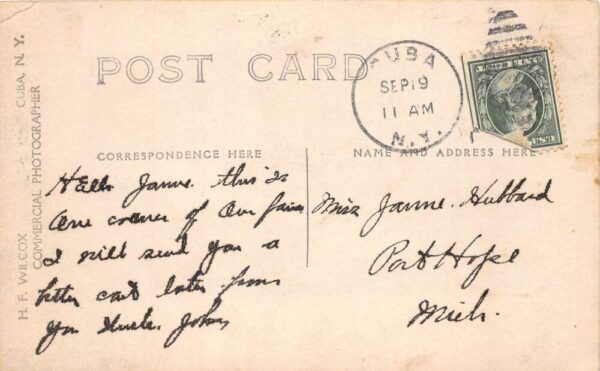 POST CARD
CUBA
SEP 19
11 AM
N.Y.
CORRESPONDENCE HERE
NAME AND ADDRESS HERE
H. F. WILCOX CUBA, N. Y.
COMMERCIAL PHOTOGRAPHER
Hello Janne. this is
One corner of Our fair
I will send you a
better card later from
you Uncle. John
Miss Janne. Hubbard
Port Hope
Mich.